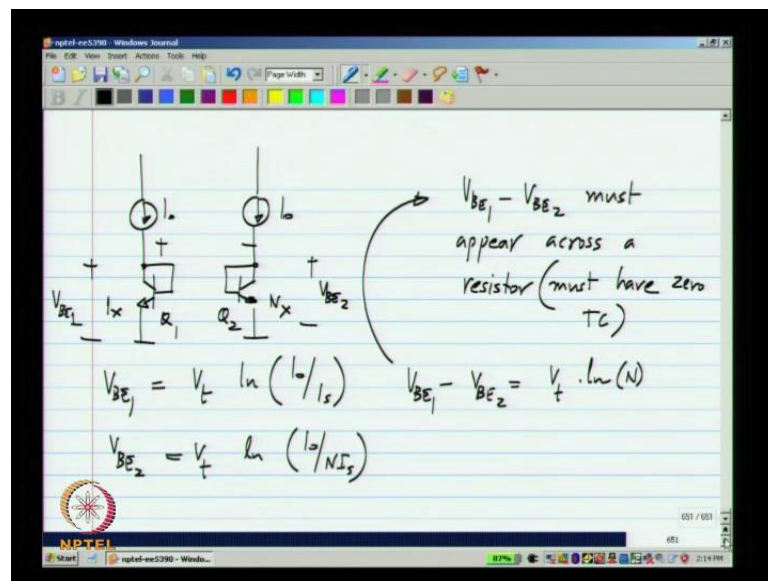 nptel-ee5390 - Windows Journal
File Edit View Insert Actions Tools Help
Page Width
B I
I₀ I₀
+ −
+ +
V_BE₁ 1x Q₁ Q₂ Nx V_BE₂
− −
V_BE₁ − V_BE₂ must
appear across a
resistor (must have zero
TC)
V_BE₁ = V_t ln (I₀/I_s)
V_BE₁ − V_BE₂ = V_t . ln(N)
V_BE₂ = V_t ln (I₀/NI_s)
651 / 651
651
NPTEL
Start nptel-ee5390 - Windo... 87% 2:14 PM